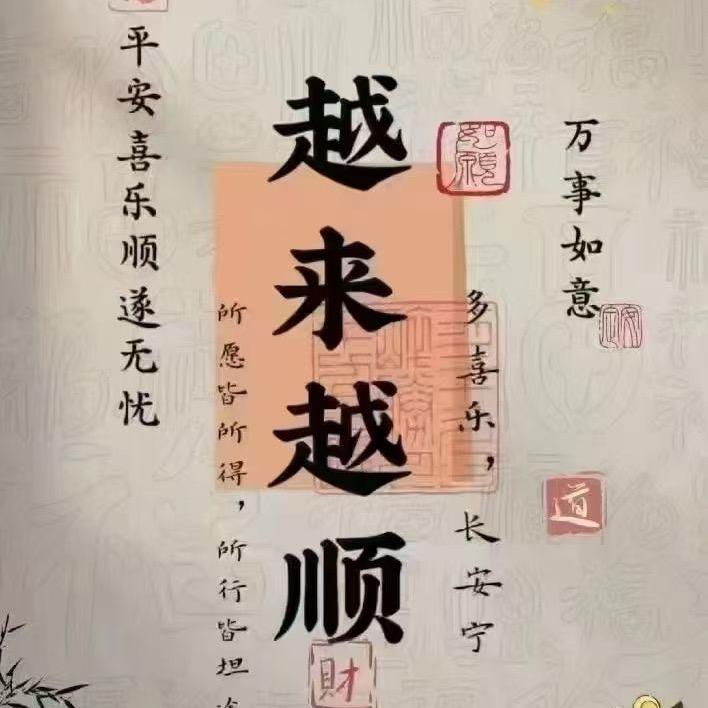 万事如意
安
如愿
道
多喜乐，长安宁
越来越顺
財
所愿皆所得，所行皆坦途
平安喜乐顺遂无忧